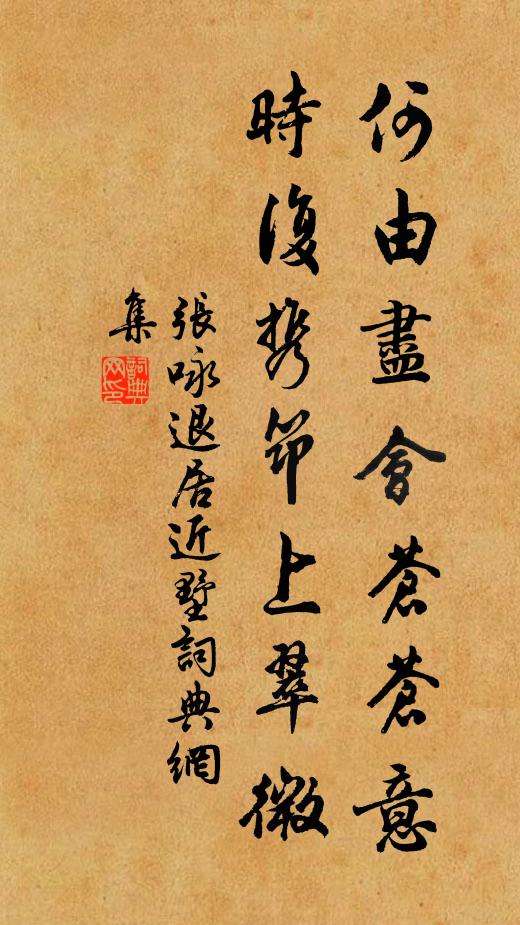 何由盡會蒼蒼意
時復携筇上翠微
張咏退居近墅詞典網
集
詞典
网印